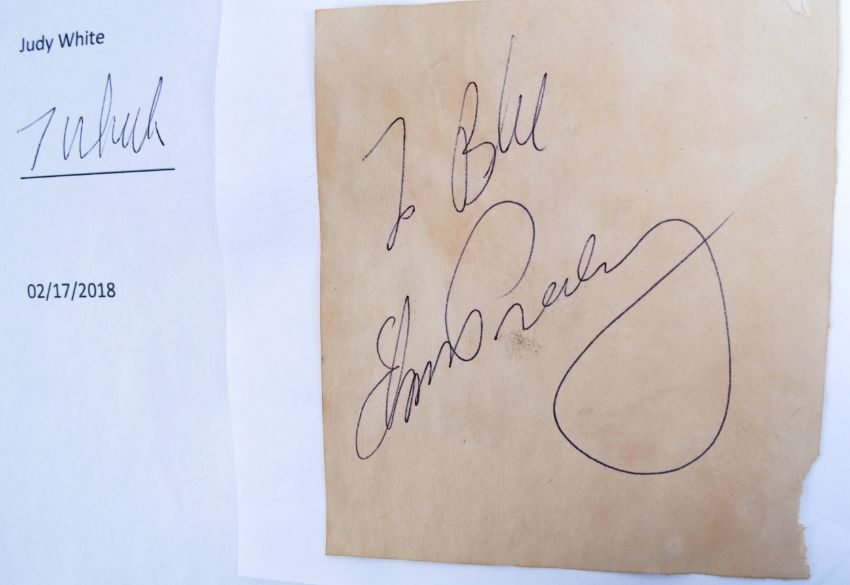 Judy White
02/17/2018
To Bill
Elvis Presley